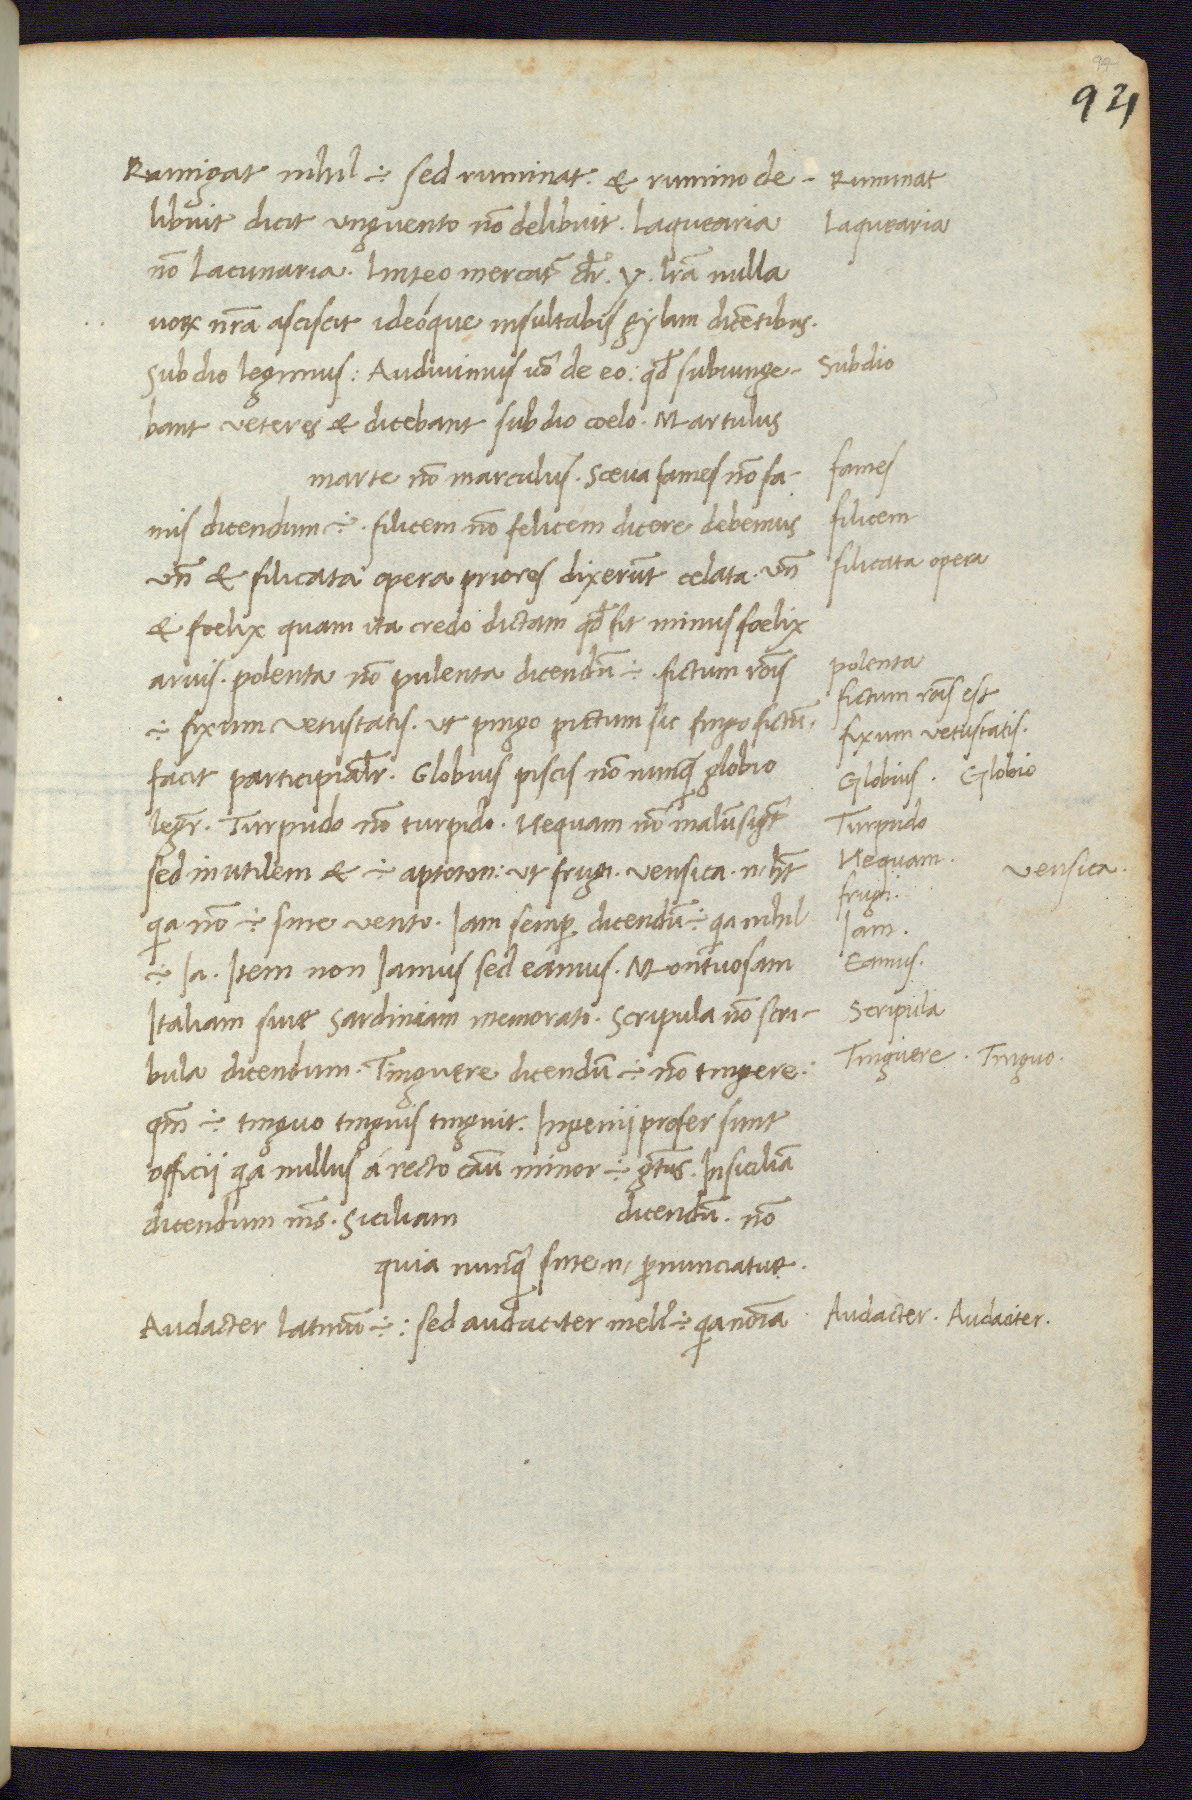 94
94
Rumigat nihil ÷ sed ruminat. & rumino de-
libuit dicit unguento nō delibuit. laquearia
nō lacunaria. linteo mercat᷑ dr̄. y. lr̄ā nulla
uox nr̄ā asciscit ideóque insultabis gylam dicētibus.
sub dio legimus: Audiuimus uō de eo: qđ subiunge-
bant veteres & dicebant sub dio coelo. Martulus
marte nō marculus. Sceua fames nō fa-
mis dicendum ÷. filicem nō felicem dicere debemus
vn̄ & filicata opera priores dixerūt celata. vn̄
& foelix quam ita credo dictam qđ sit minus foelix
aruis. polenta nō pulenta dicendū ÷. fictum rōis
÷ fixum vetustatis. ut pingo pictum sic fingo fictū.
facit participialr̄. Globus piscis nō nunq̄ globio
legr̄. Turpudo nō turpido. Nequam nō malū sigt̄
sed inutilem & ÷ aptoton: ut frugi. vensica. n. ht̄
qa nō ÷ sine vento. Iam semp̄ dicendū ÷ qa nihil
÷ Ia. Item non Iamus sed eamus. Montuosam
Italiam siue Sardiniam memorato. Scripula nō scri-
bula dicendum. Tinguere dicendū ÷ nō tingere:
qm̄ ÷ tinguo tinguis tinguit. Ingenii profer sunt
officii qa nullus á recto casū minor ÷ gt̄us. In siciliā
dicendum ms̄. Siciliam dicendū. nō
quia nunq̄ sine n, p̄nunciatur.
Audacter latinū ÷: sed audaciter meli᷑ ÷ qa noīa
Ruminat
laquearia
Subdio
fames
filicem
filicata opera
polenta
fictum rōis est
fixum vetustatis.
Globius. Globio
Turpudo
Nequam. vensica.
frugi.
Iam.
Eamus.
Scripula
Tinguere. Tinguo.
Audacter. Audaciter.